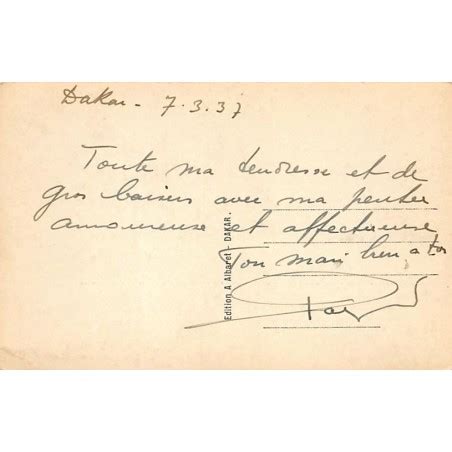 Dakar - 7.3.37
Toute ma tendresse et de
gros baisers avec ma pensée
amoureuse et affectueuse
Ton mari bien a toi
Edition A Albaret - DAKAR.